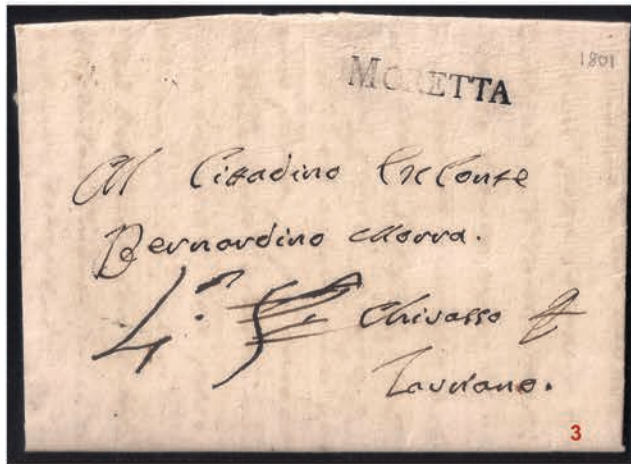 MORETTA
1801
Al Cittadino ExConte
Bernardino Morra.
4.
Chivasso
Lauriano.
3